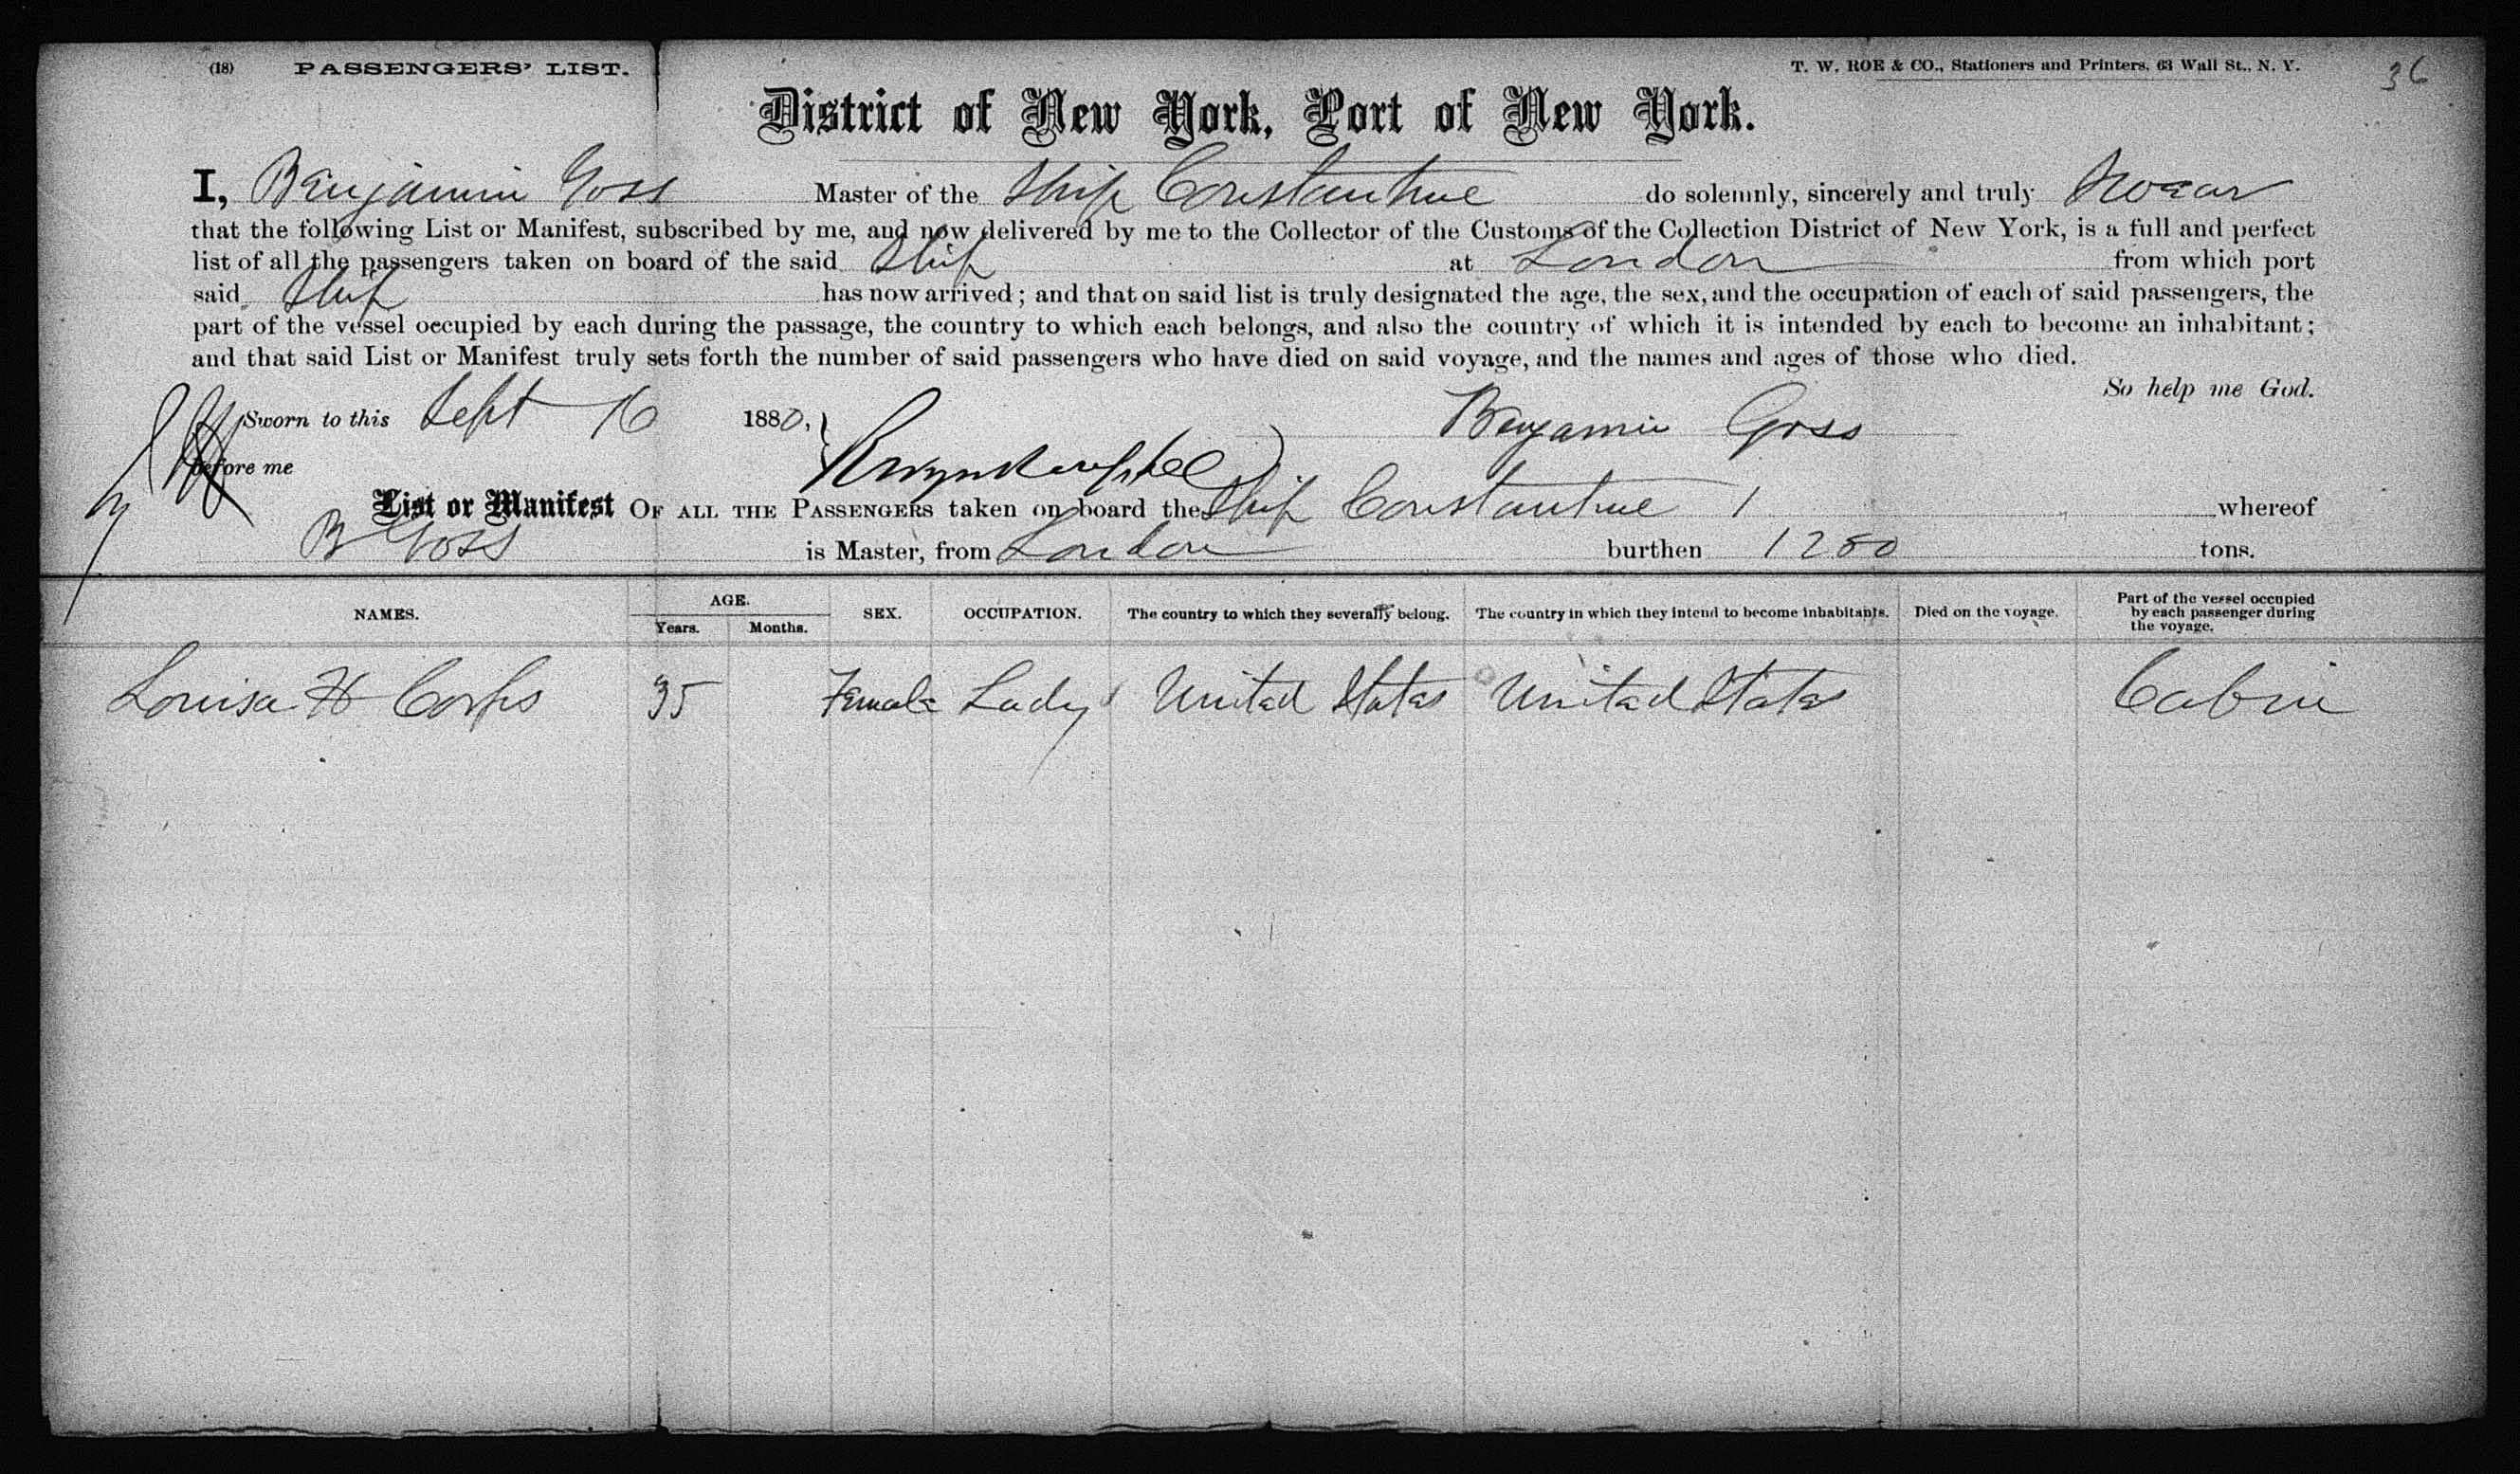 (18) PASSENGERS' LIST.
T. W. ROE & CO., Stationers and Printers, 63 Wall St., N. Y.
36
District of New York, Port of New York.
I, Benjamin Goss Master of the Ship Constantine do solemnly, sincerely and truly Swear
that the following List or Manifest, subscribed by me, and now delivered by me to the Collector of the Customs of the Collection District of New York, is a full and perfect
list of all the passengers taken on board of the said Ship at London from which port
said Ship has now arrived; and that on said list is truly designated the age, the sex, and the occupation of each of said passengers, the
part of the vessel occupied by each during the passage, the country to which each belongs, and also the country of which it is intended by each to become an inhabitant;
and that said List or Manifest truly sets forth the number of said passengers who have died on said voyage, and the names and ages of those who died.
So help me God.
Sworn to this Sept 16 1880, Benjamin Goss
before me
List or Manifest OF ALL THE PASSENGERS taken on board the Ship Constantine 1 whereof
B Goss is Master, from London burthen 1280 tons.
NAMES. AGE. Years. Months. SEX. OCCUPATION. The country to which they severally belong. The country in which they intend to become inhabitants. Died on the voyage. Part of the vessel occupied by each passenger during the voyage.
Louisa H Corfs 35 Female Lady United States United States Cabin